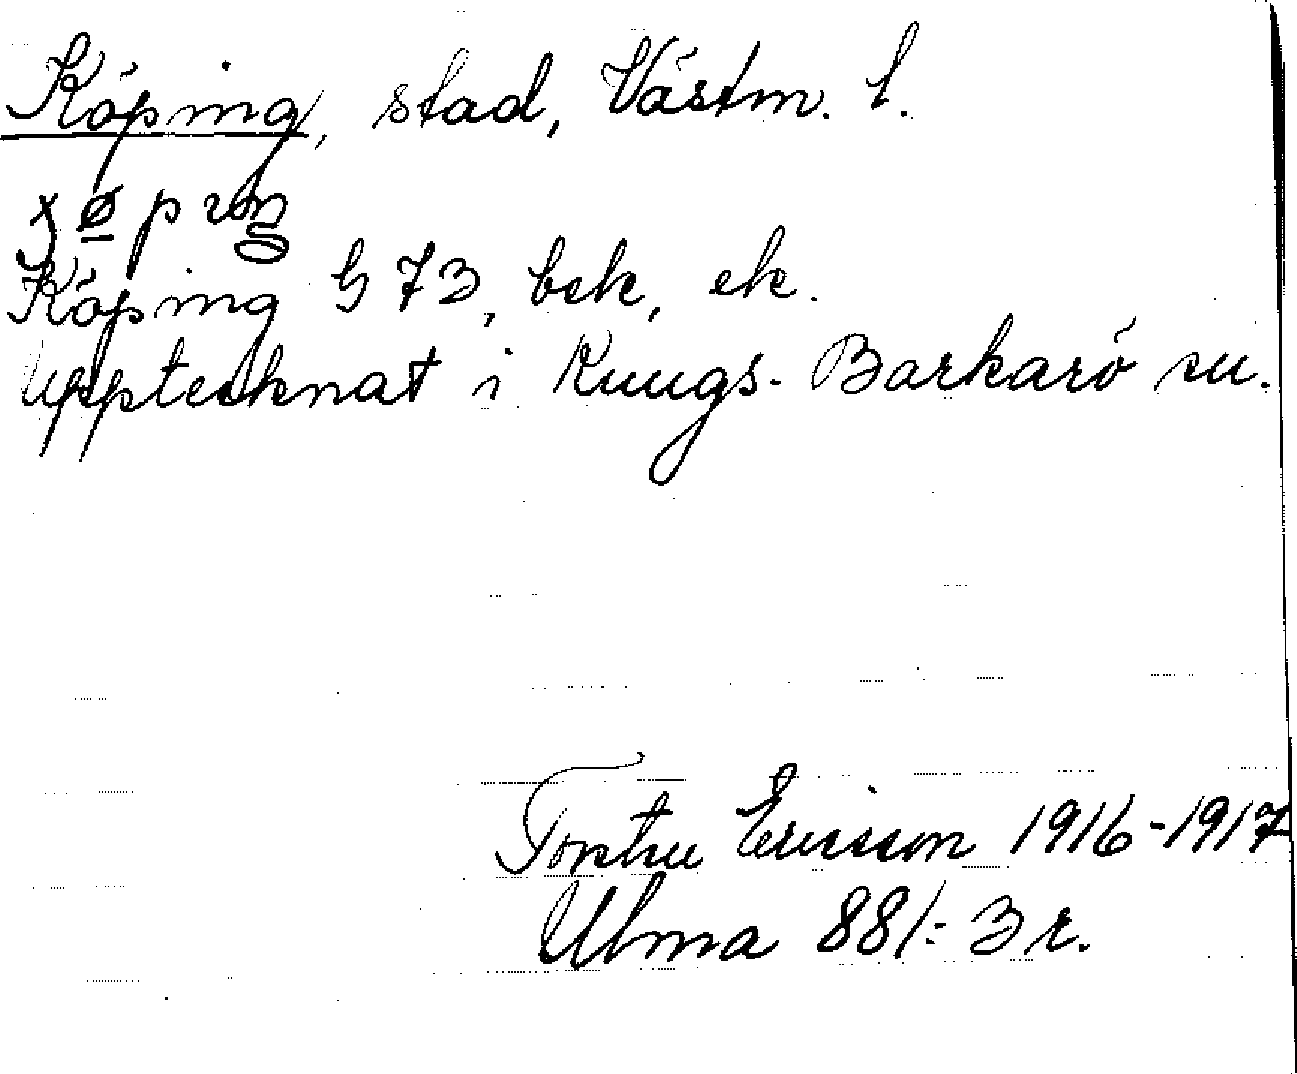 Köping, stad, Västm. l.
Köping § 73, bek, ek.
Upptecknat i Kungs-Barkarö sn.
Torsten Ericsson 1916-1917
Ulma 881:3 r.